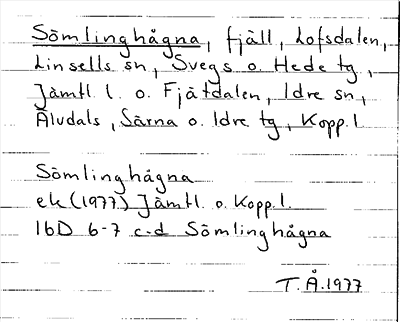 Sömlinghågna, fjäll, Lofsdalen,
Linsells sn, Svegs o. Hede tg,
Jämtl. l. o. Fjätdalen, Idre sn,
Älvdals, Särna o. Idre tg, Kopp. l
Sömlinghågna
ek (1977) Jämtl. o. Kopp. l.
16D 6-7 c-d Sömlinghågna
T. Å. 1977